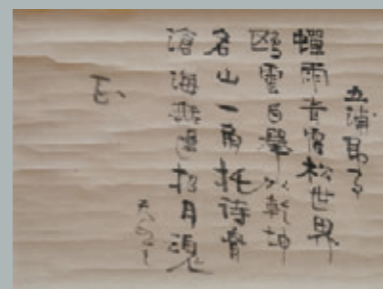 五浦即事
蟬雨青霄松世界
鷗雲白擧水乾坤
名山一角托詩骨
滄海無邊招月魂
天心